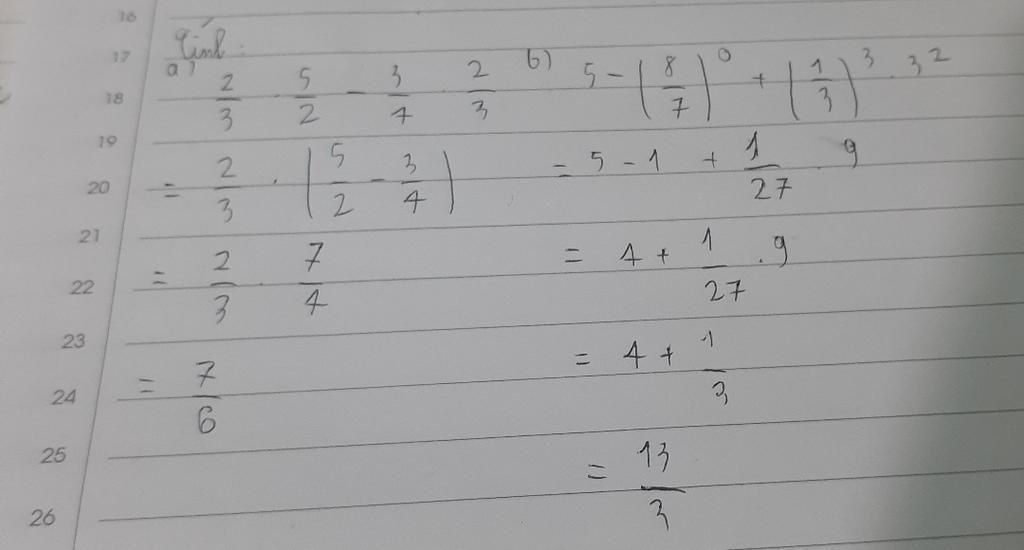 16
17 Tính:
18 a) 2/3 . 5/2 - 3/4 . 2/3 b) 5 - (8/7)^0 + (1/3)^3 . 3^2
19
20 = 2/3 . (5/2 - 3/4) = 5 - 1 + 1/27 . 9
21
22 = 2/3 . 7/4 = 4 + 1/27 . 9
23
24 = 7/6 = 4 + 1/3
25 = 13/3
26